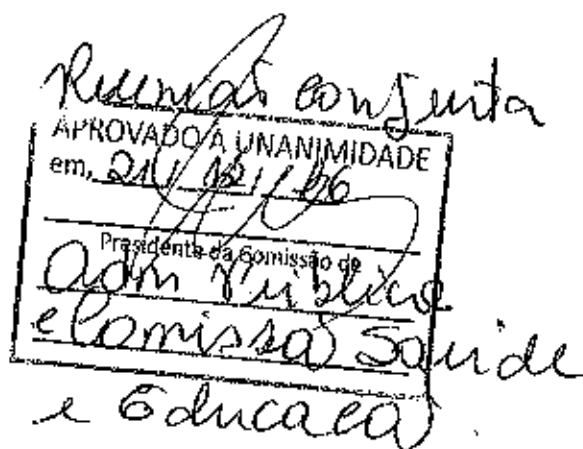 Reunião conjunta
APROVADO À UNANIMIDADE
em, 21 / 12 / 16
Presidente da Comissão de
Adm Pública
e Comissão Saúde
e Educação.